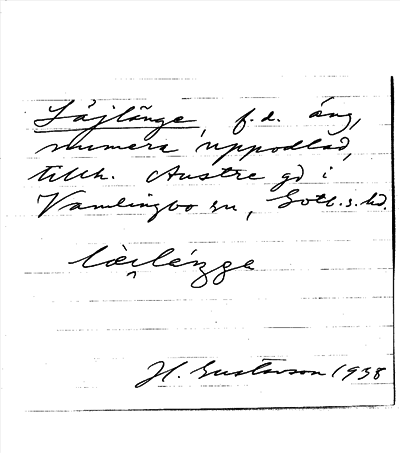 Låjlänge, f.d. äng,
numera uppodlad,
tillh. Austre gd i
Vamlingbo sn, Gotl. s. hd.
H. Gustavson 1938